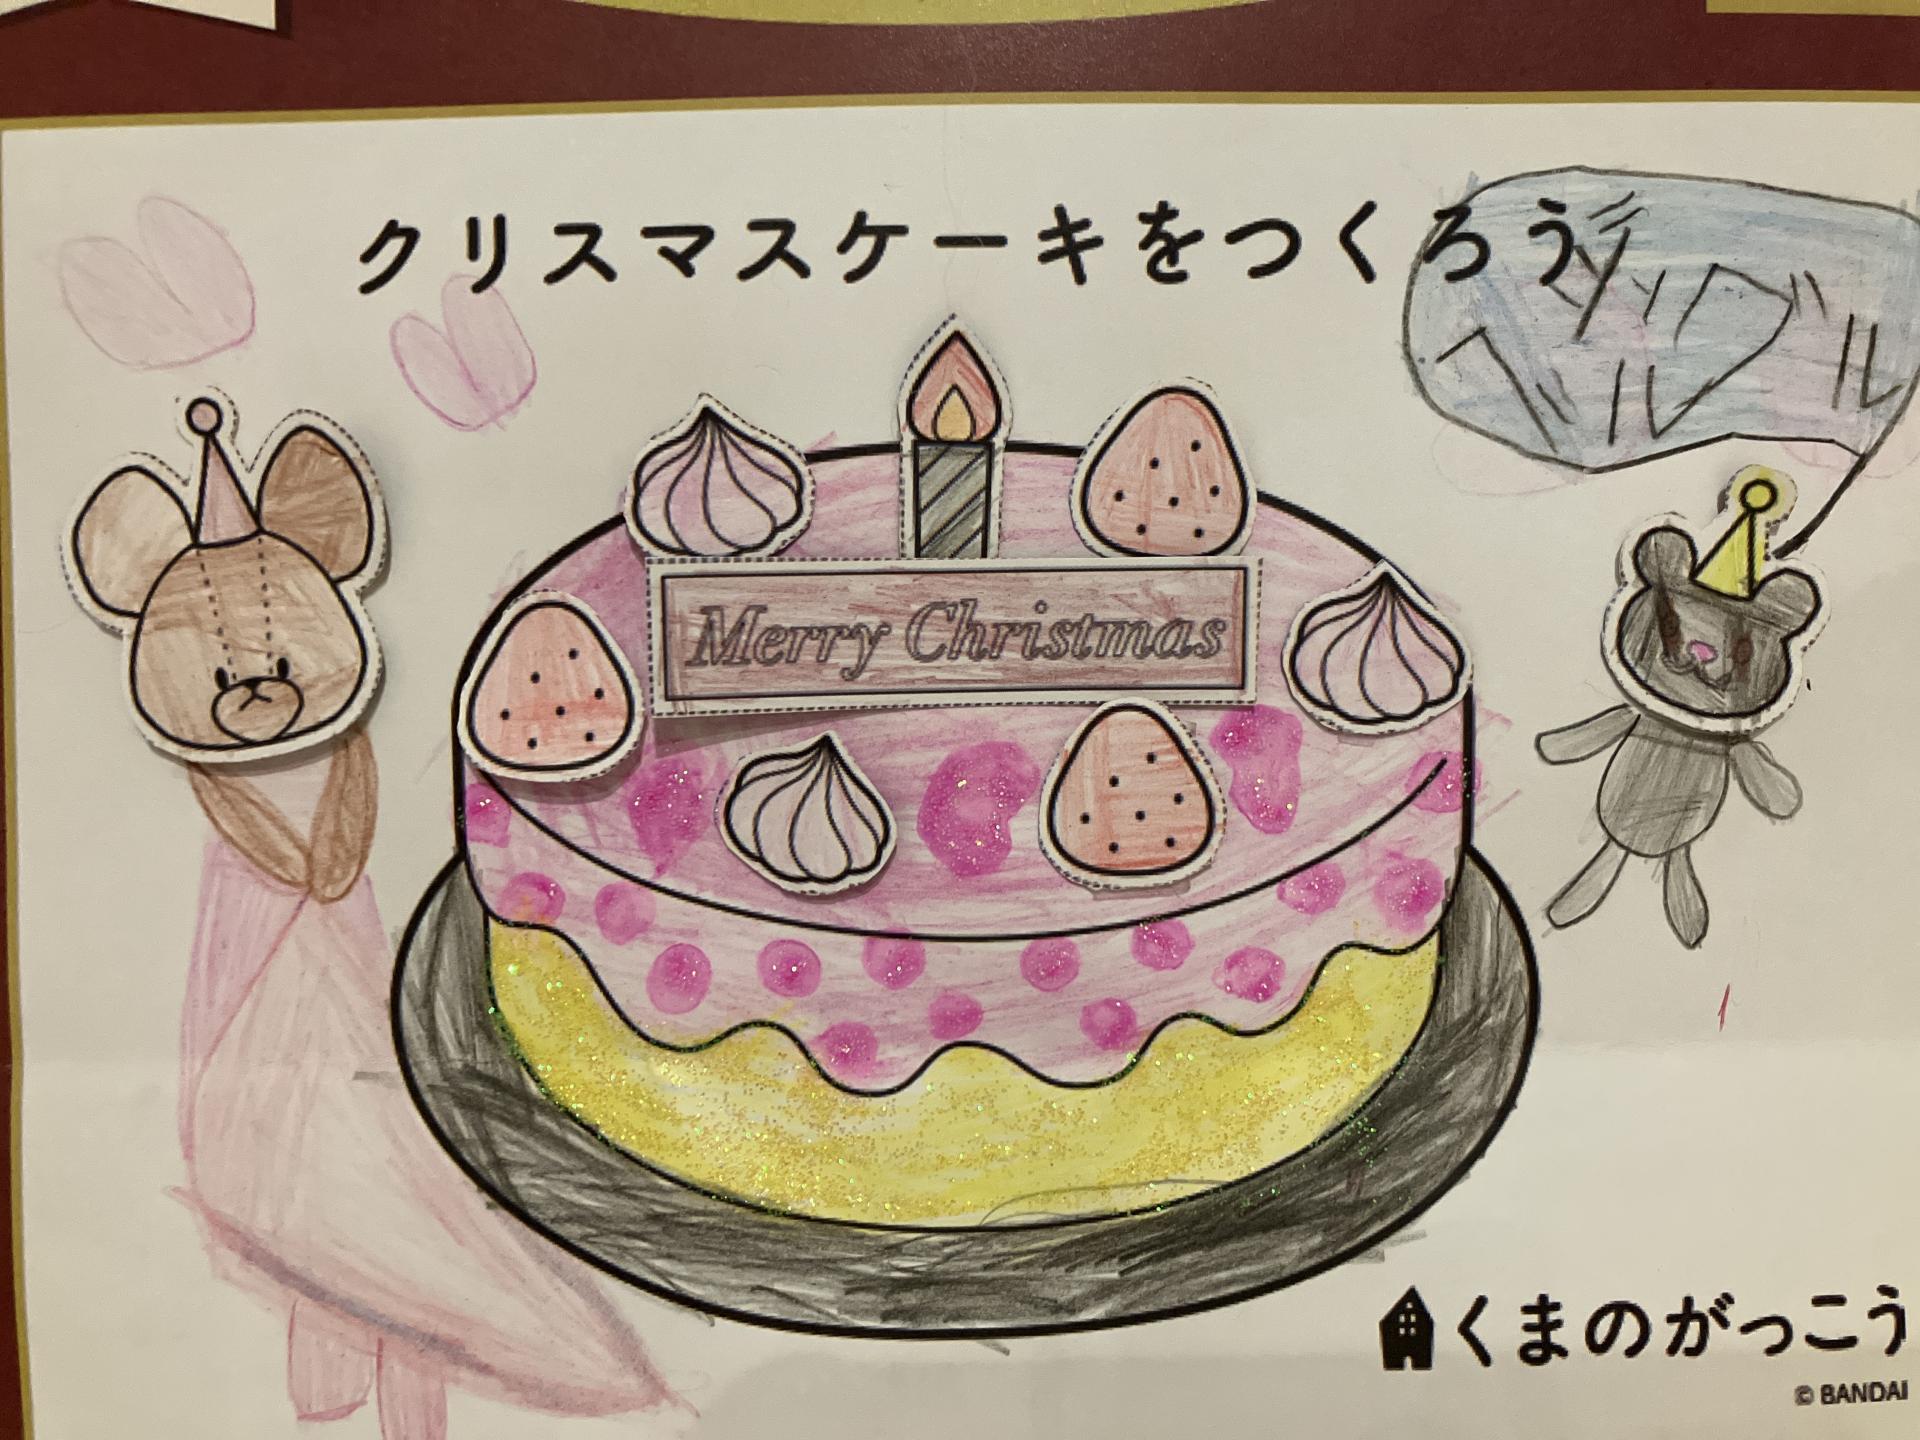 クリスマスケーキをつくろう
Merry Christmas
くまのがっこう
© BANDAI